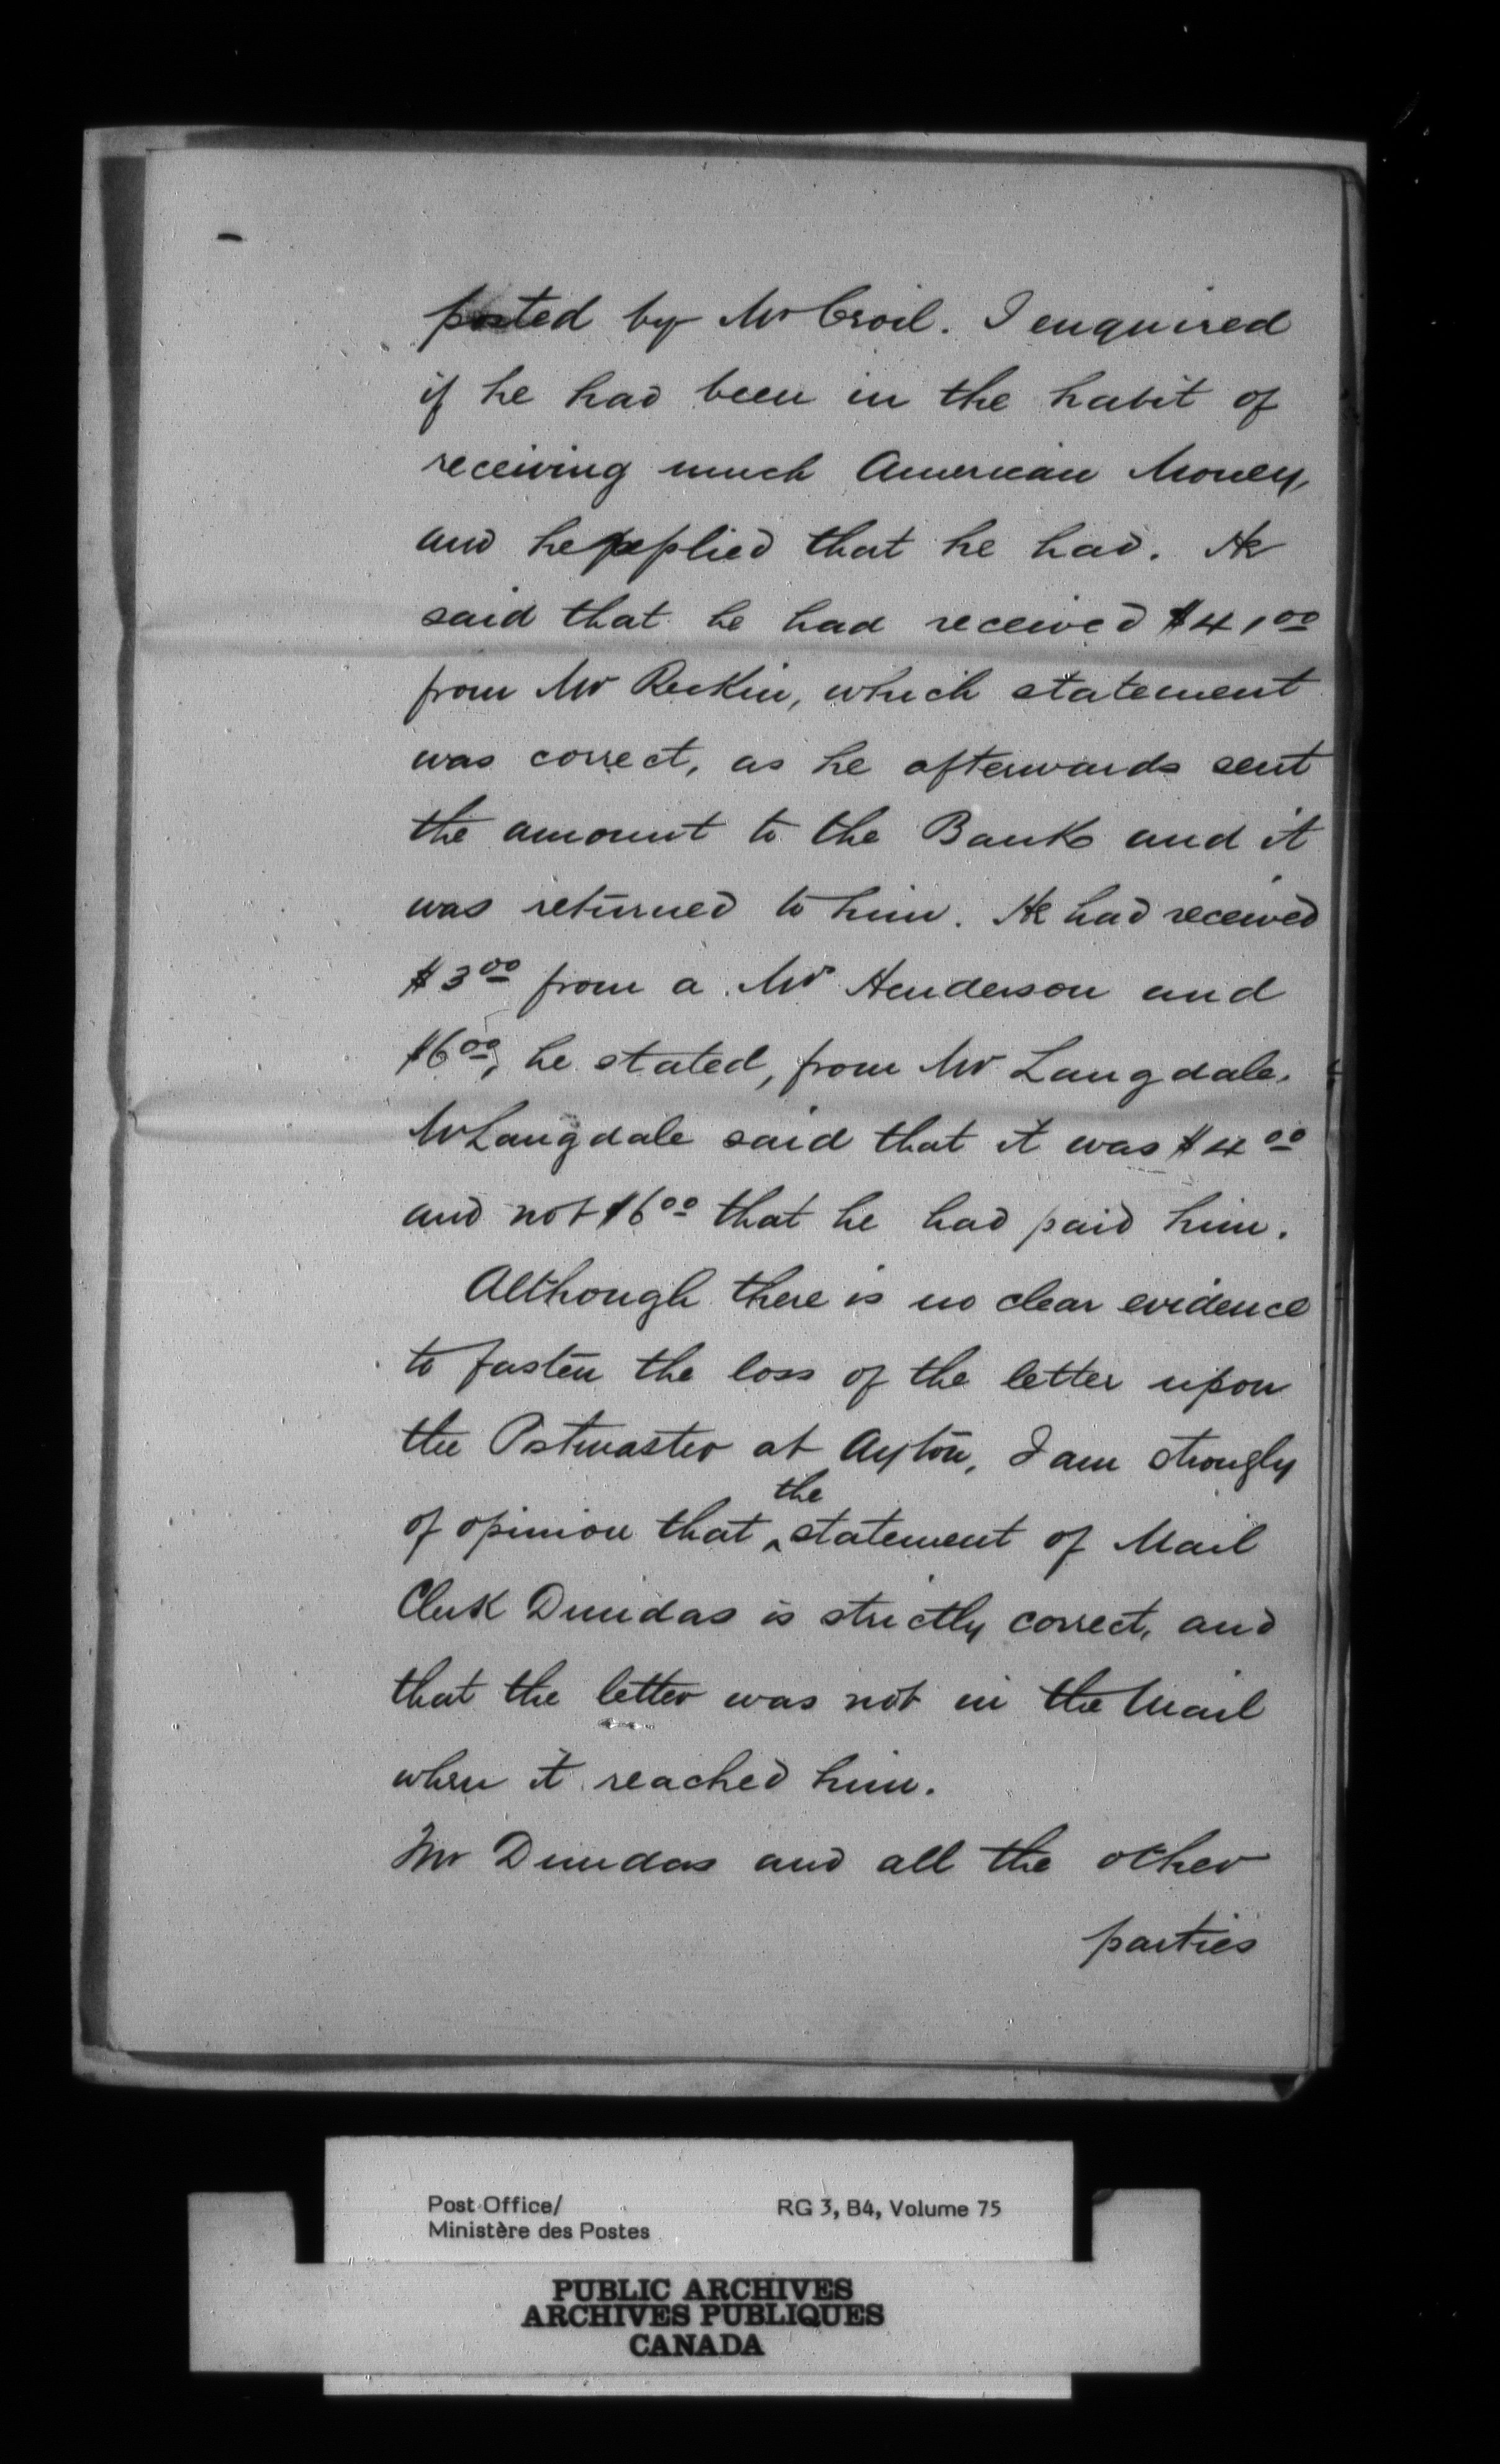 posted by Mr Croil. I enquired
if he had been in the habit of
receiving much American Money,
and he replied that he had. He
said that he had received $41.00
from Mr , which statement
was correct, as he afterwards sent
the amount to the Bank and it
was returned to him. He had received
$3.00 from a Mr Henderson and
$6.00, he stated, from Mr Langdale.
Mr Langdale said that it was $4.00
and not $6.00 that he had paid him.
Although there is no clear evidence
to fasten the loss of the letter upon
the Postmaster at Ayton, I am strongly
of opinion that ‸the statement of Mail
Clerk Dundas is strictly correct, and
that the letter was not in the Mail
when it reached him.
Mr Dundas and all the other
parties
Post Office/ RG 3, B4, Volume 75
Ministère des Postes
PUBLIC ARCHIVES
ARCHIVES PUBLIQUES
CANADA